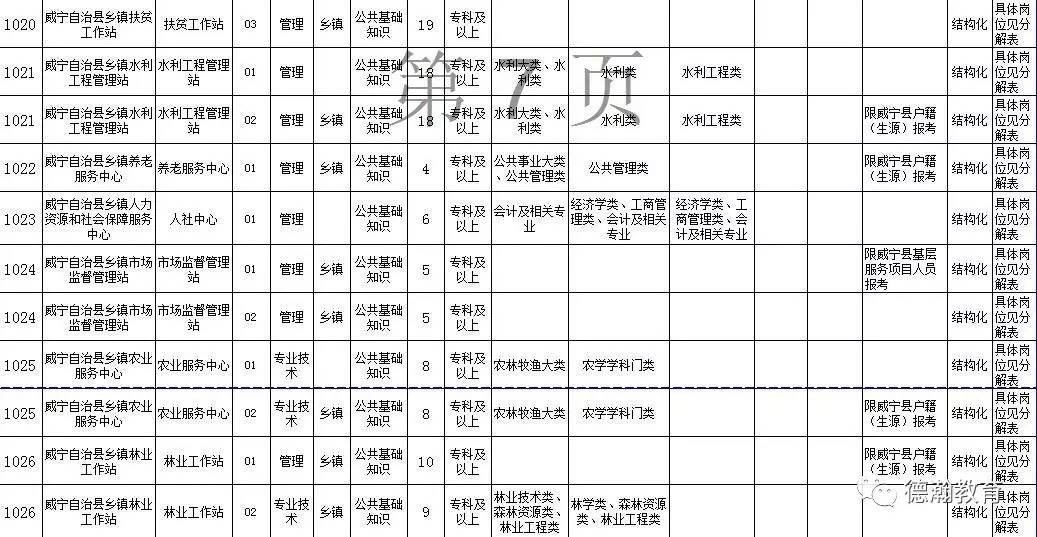 1020 威宁自治县乡镇扶贫工作站 扶贫工作站 03 管理 乡镇 公共基础知识 19 专科及以上 结构化 具体岗位见分解表
1021 威宁自治县乡镇水利工程管理站 水利工程管理站 01 管理 公共基础知识 18 专科及以上 水利大类、水利类 水利类 水利工程类 结构化 具体岗位见分解表
第 7 页
1021 威宁自治县乡镇水利工程管理站 水利工程管理站 02 管理 乡镇 公共基础知识 18 专科及以上 水利大类、水利类 水利类 水利工程类 限威宁县户籍（生源）报考 结构化 具体岗位见分解表
1022 威宁自治县乡镇养老服务中心 养老服务中心 01 管理 乡镇 公共基础知识 4 专科及以上 公共事业大类、公共管理类 公共管理类 限威宁县户籍（生源）报考 结构化 具体岗位见分解表
1023 威宁自治县乡镇人力资源和社会保障服务中心 人社中心 01 管理 公共基础知识 6 专科及以上 会计及相关专业 经济学类、工商管理类、会计及相关专业 经济学类、工商管理类、会计及相关专业 结构化 具体岗位见分解表
1024 威宁自治县乡镇市场监督管理站 市场监督管理站 01 管理 乡镇 公共基础知识 5 专科及以上 限威宁县基层服务项目人员报考 结构化 具体岗位见分解表
1024 威宁自治县乡镇市场监督管理站 市场监督管理站 02 管理 乡镇 公共基础知识 5 专科及以上 结构化 具体岗位见分解表
1025 威宁自治县乡镇农业服务中心 农业服务中心 01 专业技术 公共基础知识 8 专科及以上 农林牧渔大类 农学学科门类 结构化 具体岗位见分解表
1025 威宁自治县乡镇农业服务中心 农业服务中心 02 专业技术 乡镇 公共基础知识 8 专科及以上 农林牧渔大类 农学学科门类 限威宁县户籍（生源）报考 结构化 具体岗位见分解表
1026 威宁自治县乡镇林业工作站 林业工作站 01 管理 乡镇 公共基础知识 10 专科及以上 限威宁县户籍（生源）报考 结构化 具体岗位见分解表
1026 威宁自治县乡镇林业工作站 林业工作站 02 专业技术 乡镇 公共基础知识 9 专科及以上 林业技术类、森林资源类、林业工程类 林学类、森林资源类、林业工程类 结构化 具体岗位见分解表
德瀚教育